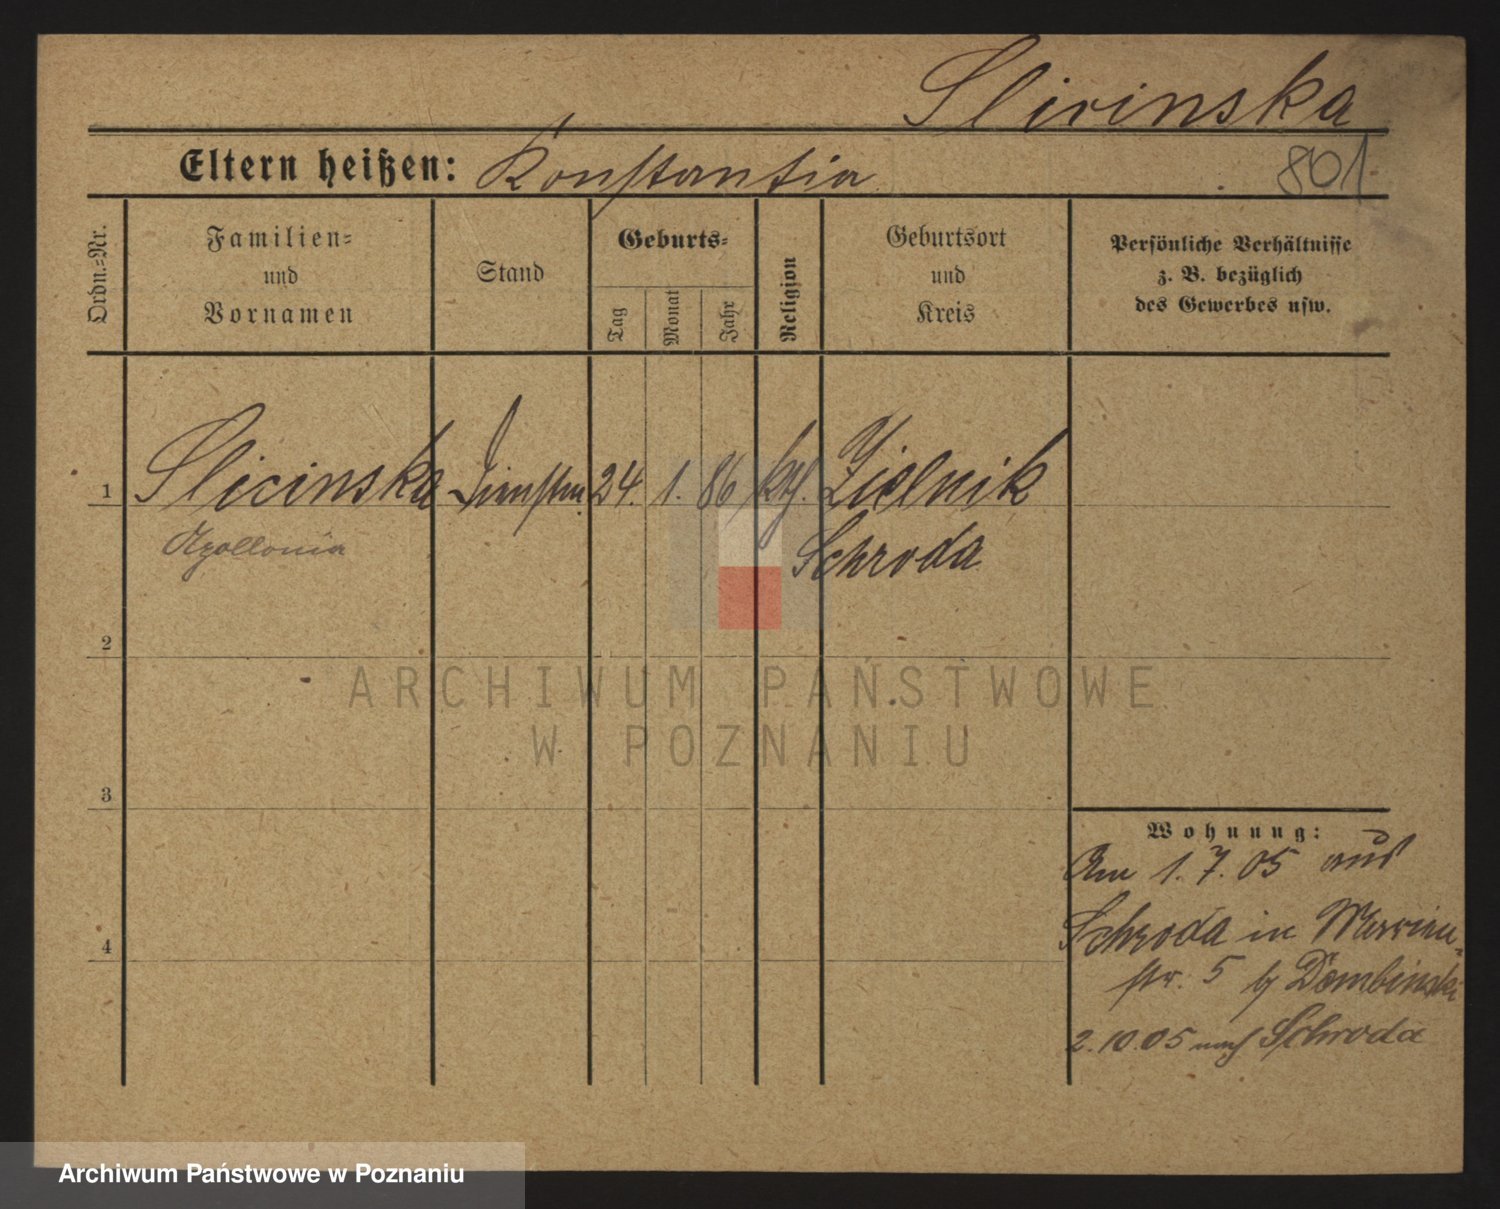 Slivinska
Eltern heißen: Konstantia
801
Ordn.=Nr.
Familien=
und
Vornamen
Stand
Geburts=
Tag
Monat
Jahr
Religion
Geburtsort
und
Kreis
Persönliche Verhältnisse
z. B. bezüglich
des Gewerbes usw.
1 Slicinska 24. 1. 86 kth. Zielnik
Apollonia
Schroda
2
3
4
ARCHIWUM PAŃSTWOWE
W POZNANIU
Wohnung:
Am 1. 7. 05 aus
Schroda in
str. 5 b/ Dombinski
2.10.05 nach Schroda
Archiwum Państwowe w Poznaniu